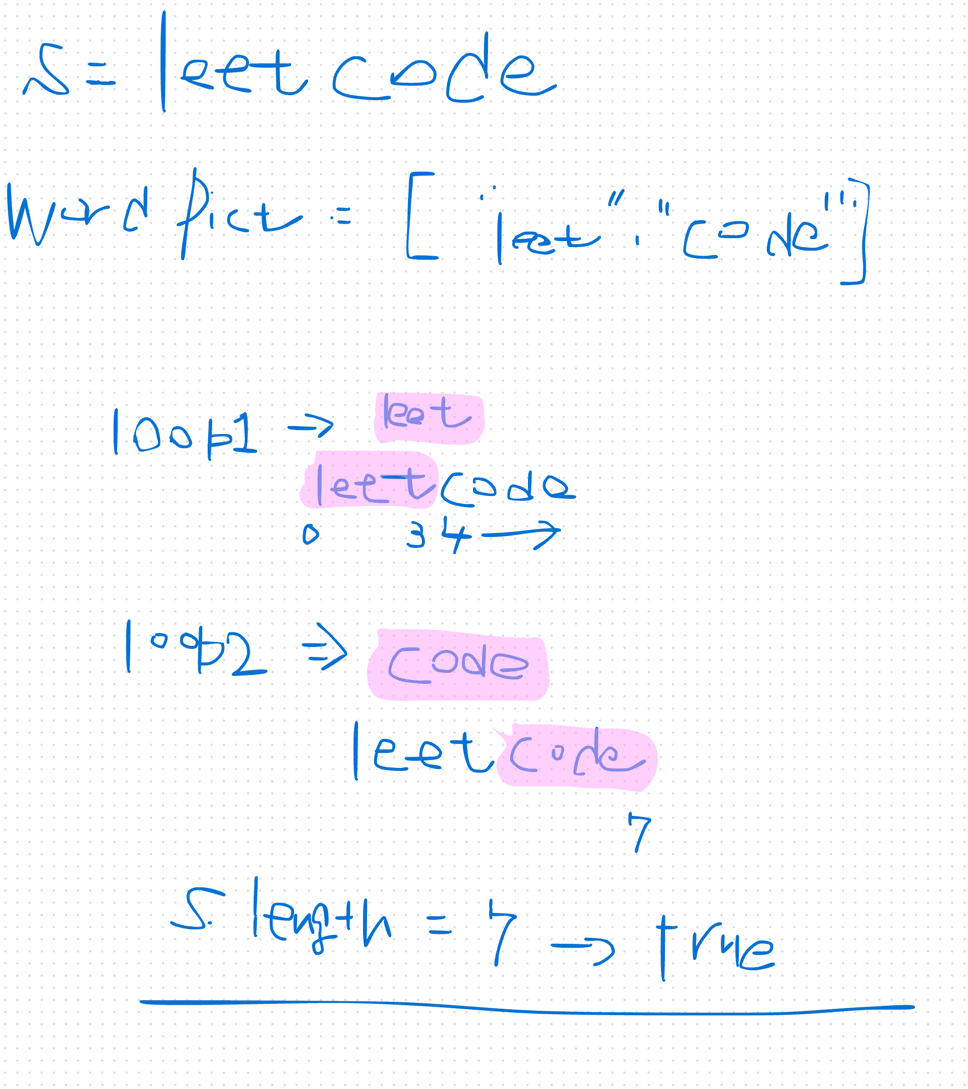 s = leetcode
word Dict = [ "leet", "code" ]
loop1 → leet
leetcode
0 3 4 →
loop2 ⇒ code
leetcode
7
s. length = 7 → true